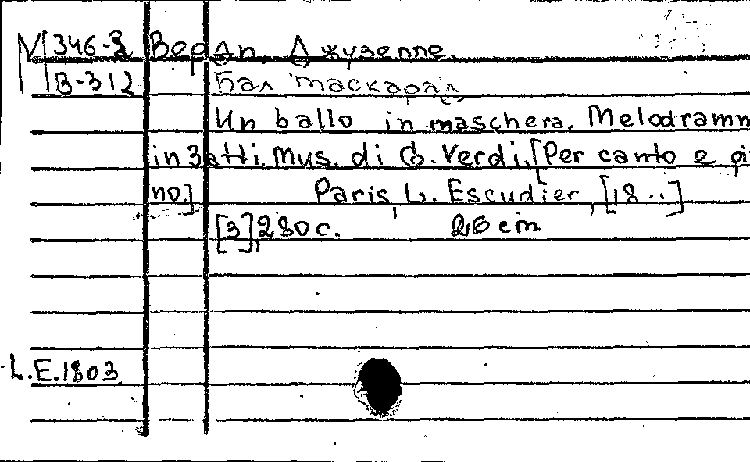 М 346-3 Верди, Джузеппе.
В-312 Бал маскарад
Un ballo in maschera. Melodramm
in 3 atti. Mus. di G. Verdi. [Per canto e pi
no.] Paris, L. Escudier, [18..]
[3], 280 с. 26 cm
L.E.1803